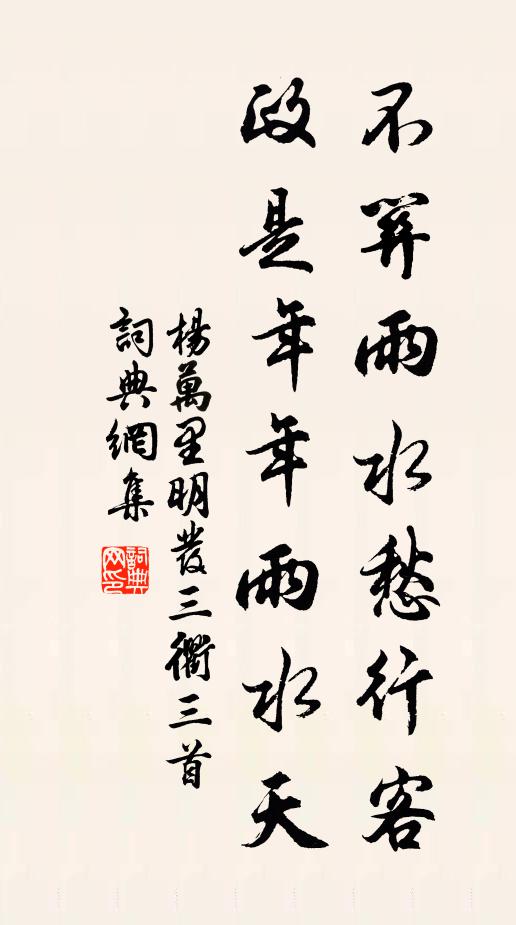 不關雨水愁行客
政是年年雨水天
楊萬里明發三衢三首
詞典網集
詞典网印